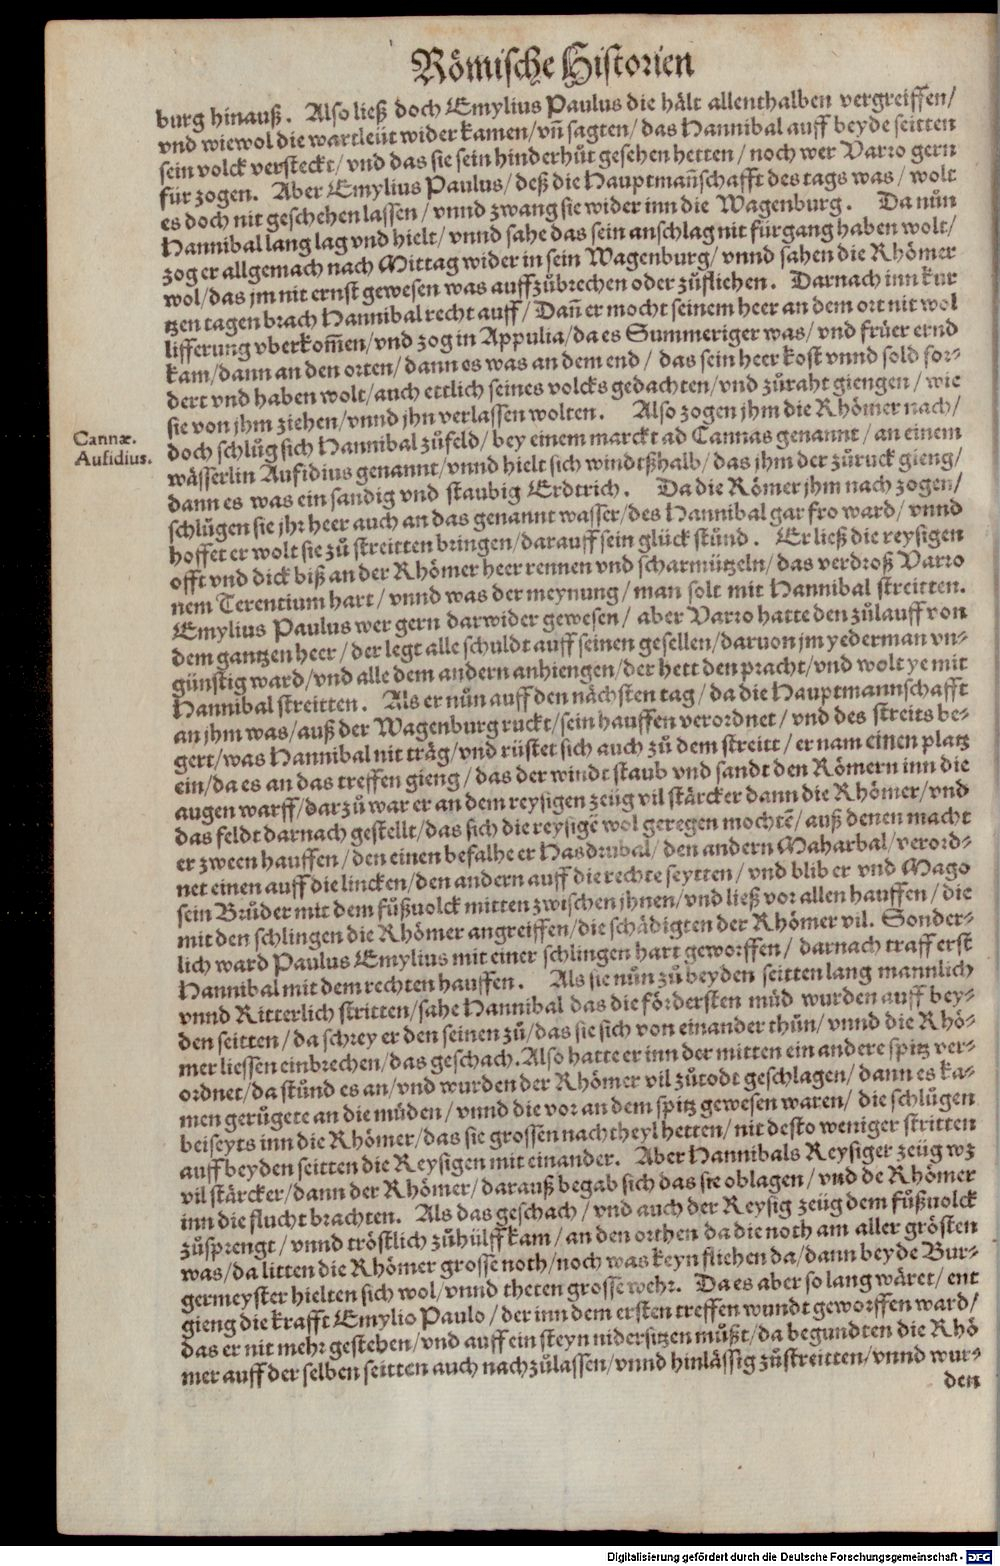 Römische Historien
burg hinauß. Also ließ doch Emylius Paulus die hält allenthalben vergreiffen/
vnd wiewol die wartleüt wider kamen/vñ sagten/das Hannibal auff beyde seitten
sein volck versteckt/vnd das sie sein hinderhůt gesehen hetten/noch wer Varro gern
für zogen. Aber Emylius Paulus/deß die Hauptmañschafft des tags was/wolt
es doch nit geschehen lassen/vnnd zwang sie wider inn die Wagenburg. Da nůn
Hannibal lang lag vnd hielt/vnnd sahe das sein anschlag nit fürgang haben wolt/
zog er allgemach nach Mittag wider in sein Wagenburg/vnnd sahen die Rhömer
wol/das jm nit ernst gewesen was auffzůbrechen oder zůfliehen. Darnach inn kur
tzen tagen brach Hannibal recht auff/Dañ er mocht seinem heer an dem ort nit wol
lifferung vberkom̃en/vnd zog in Appulia/da es Summeriger was/vnd früer ernd
kam/dann an den orten/dann es was an dem end/das sein heer kost vnnd sold for⸗
dert vnd haben wolt/auch ettlich seines volcks gedachten/vnd zůraht giengen/wie
sie von jhm ziehen/vnnd jhn verlassen wolten. Also zogen jhm die Rhömer nach/
Cannæ.
doch schlůg sich Hannibal zůfeld/bey einem marckt ad Cannas genannt/an einem
Aufidius.
wässerlin Aufidius genannt/vnnd hielt sich windtßhalb/das jhm der zůruck gieng/
dann es was ein sandig vnd staubig Erdtrich. Da die Römer jhm nach zogen/
schlůgen sie jhr heer auch an das genannt wasser/des Hannibal gar fro ward/vnnd
hoffet er wolt sie zů streitten bringen/darauff sein glück stůnd. Er ließ die reysigen
offt vnd dick biß an der Rhömer heer rennen vnd scharmützeln/das verdroß Varro
nem Terentium hart/vnnd was der meynung/man solt mit Hannibal streitten.
Emylius Paulus wer gern darwider gewesen/aber Varro hatte den zůlauff von
dem gantzen heer/der legt alle schuldt auff seinen gesellen/daruon jm yederman vn⸗
günstig ward/vnd alle dem andern anhiengen/der hett den pracht/vnd wolt ye mit
Hannibal streitten. Als er nůn auff den nächsten tag/da die Hauptmannschafft
an jhm was/auß der Wagenburg ruckt/sein hauffen verordnet/vnd des streits be⸗
gert/was Hannibal nit träg/vnd rüstet sich auch zů dem streitt/er nam einen platz
ein/da es an das treffen gieng/das der windt staub vnd sandt den Römern inn die
augen warff/darzů war er an dem reysigen zeüg vil stärcker dann die Rhömer/vnd
das feldt darnach gestellt/das sich die reysigẽ wol geregen mochtẽ/auß denen macht
er zween hauffen/den einen befalhe er Hasdrubal/den andern Maharbal/verord⸗
net einen auff die lincken/den andern auff die rechte seytten/vnd blib er vnd Mago
sein Brůder mit dem fůßuolck mitten zwischen jhnen/vnd ließ vor allen hauffen/die
mit den schlingen die Rhömer angreiffen/die schädigten der Rhömer vil. Sonder⸗
lich ward Paulus Emylius mit einer schlingen hart geworffen/darnach traff erst
Hannibal mit dem rechten hauffen. Als sie nůn zů beyden seitten lang mannlich
vnnd Ritterlich stritten/sahe Hannibal das die fördersten müd wurden auff bey⸗
den seitten/da schrey er den seinen zů/das sie sich von einander thůn/vnnd die Rhö⸗
mer liessen einbrechen/das geschach. Also hatte er inn der mitten ein andere spitz ver⸗
ordnet/da stůnd es an/vnd wurden der Rhömer vil zůtodt geschlagen/dann es ka⸗
men gerůgete an die müden/vnnd die vor an dem spitz gewesen waren/die schlůgen
beiseyts inn die Rhömer/das sie grossen nachtheyl hetten/nit desto weniger stritten
auff beyden seitten die Reysigen mit einander. Aber Hannibals Reysiger zeüg wz
vil stärcker/dann der Rhömer/darauß begab sich das sie oblagen/vnd de Rhömer
inn die flucht brachten. Als das geschach/vnd auch der Reysig zeüg dem fůßuolck
zůsprengt/vnnd tröstlich zůhülff kam/an den orthen da die noth am aller grösten
was/da litten die Rhömer grosse noth/noch was keyn fliehen da/dann beyde Bur⸗
germeyster hielten sich wol/vnnd theten grosse wehr. Da es aber so lang wäret/ent
gieng die krafft Emylio Paulo/der inn dem ersten treffen wundt geworffen ward/
das er nit mehr gestehen/vnd auff ein steyn nidersitzen můßt/da begundten die Rhö
mer auff der selben seitten auch nachzůlassen/vnnd hinlässig zůstreitten/vnnd wur⸗
den
Digitalisierung gefördert durch die Deutsche Forschungsgemeinschaft - DFG